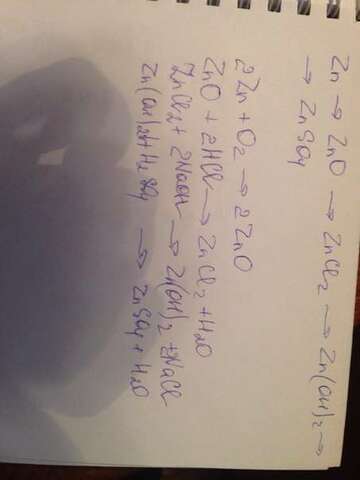 Zn → ZnO → ZnCl₂ → Zn(OH)₂ →
→ ZnSO₄
2Zn + O₂ → 2ZnO
ZnO + 2HCl → ZnCl₂ + H₂O
ZnCl₂ + 2NaOH → Zn(OH)₂ + 2NaCl
Zn(OH)₂ + H₂SO₄ → ZnSO₄ + H₂O